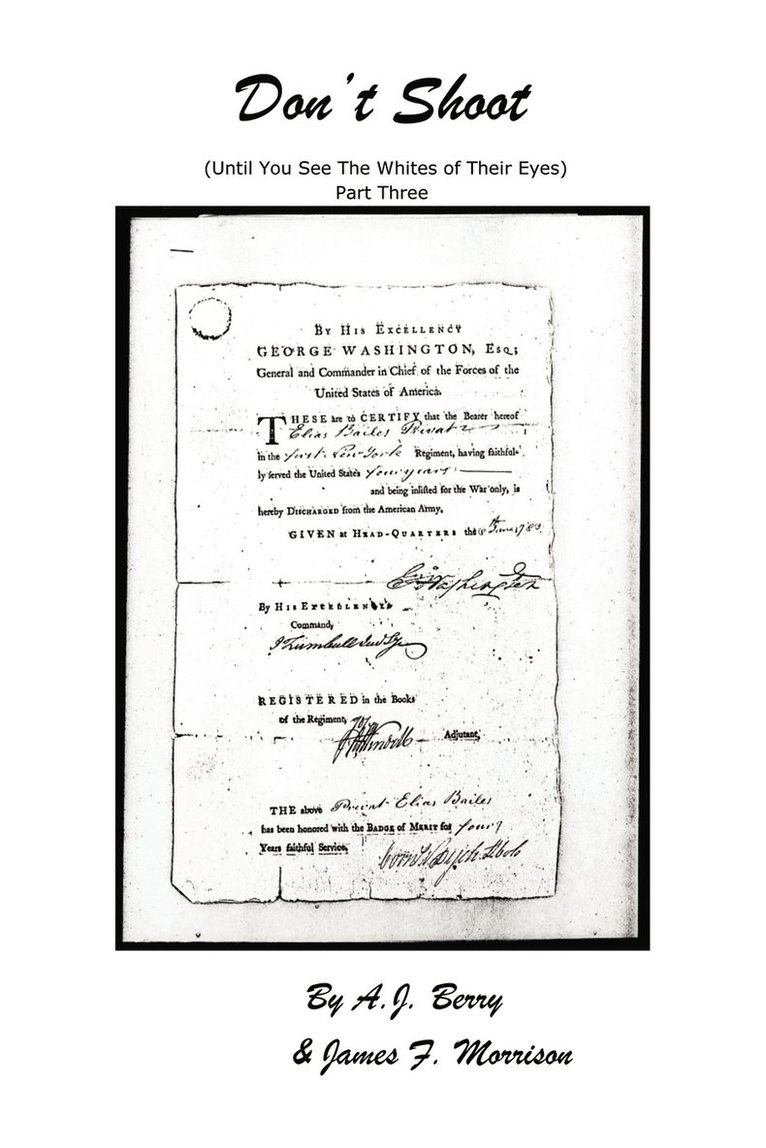 Don't Shoot
(Until You See The Whites of Their Eyes)
Part Three
BY HIS EXCELLENCY
GEORGE WASHINGTON, Esq;
General and Commander in Chief of the Forces of the
United States of America.
THESE are to CERTIFY that the Bearer hereof
Elias Bailes Privat
in the first New York Regiment, having faithful-
ly served the United States four years
and being inlisted for the War only, is
hereby DISCHARGED from the American Army.
GIVEN at HEAD-QUARTERS the 8th June 1783
G Washington
By HIS EXCELLENCY'S
Command,
J Trumbull Jun Sy
REGISTERED in the Books
of the Regiment,
Adjutant,
THE above Privat Elias Bailes
has been honored with the BADGE of MERIT for four
Years faithful Service,
By A.J. Berry
& James F. Morrison